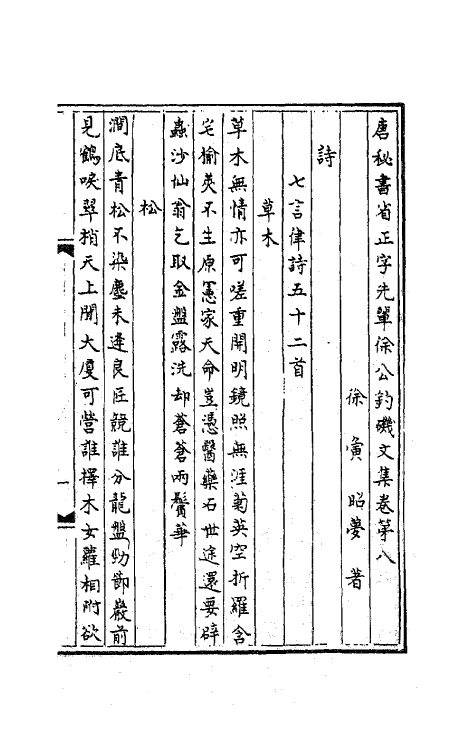 唐秘書省正字先輩徐公釣磯文集卷第八
徐寅 昭夢 著
詩
七言律詩五十二首
草木
草木無情亦可嗟重開明鏡照無涯菊英空折羅含
宅榆莢不生原憲家天命豈憑醫藥石世途還要辟
蟲沙仙翁乞取金盤露洗却蒼蒼兩鬢華
松
澗底青松不染塵未逢良匠競誰分龍盤勁節巖前
見鶴唳翠梢天上聞大廈可營誰擇木女蘿相附欲
一